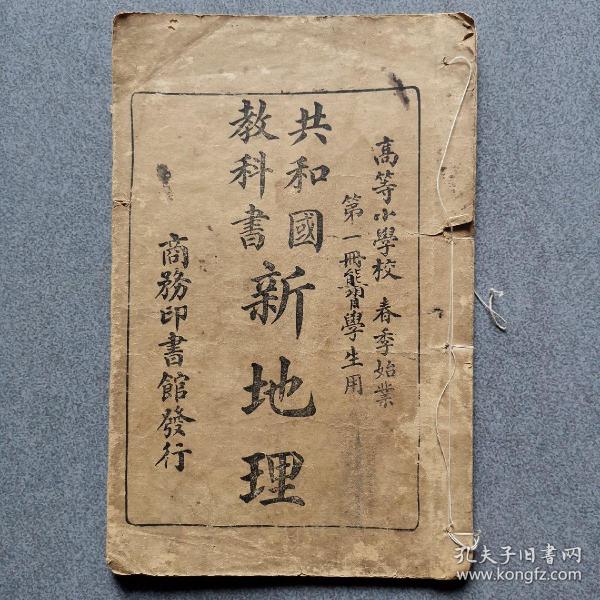 高等小學校 春季始業
第一冊 學生用
共和國
教科書
新地理
商務印書館發行
孔夫子旧书网
www.kongfz.com